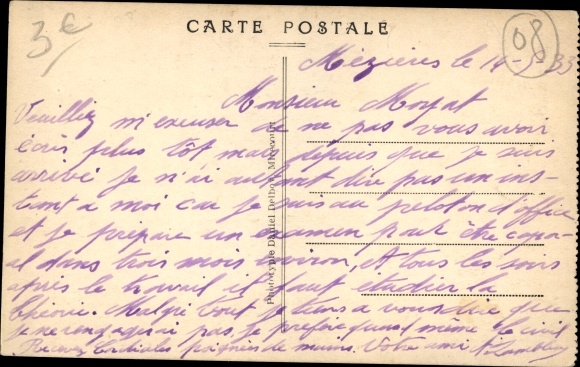 3 €
CARTE POSTALE
08
Mézières le 14-5-33
Monsieur
Veuillez m'excuser de ne pas vous avoir
écrit plus tôt mais depuis que je suis
arrivé je n'ai autant dire pas un ins-
tant a moi car je suis au peloton d'
et je prépare un examen pour être capor-
al dans trois mois environ, A tous les soirs
après le travail il faut étudier la
théorie. Malgré tout je tiens a vous dire que
je ne rengagerai pas, je préfère quand même le civil
Recevez Cordiales poignées de mains. Votre ami
Phototypie Daniel Delboy, Mirecourt